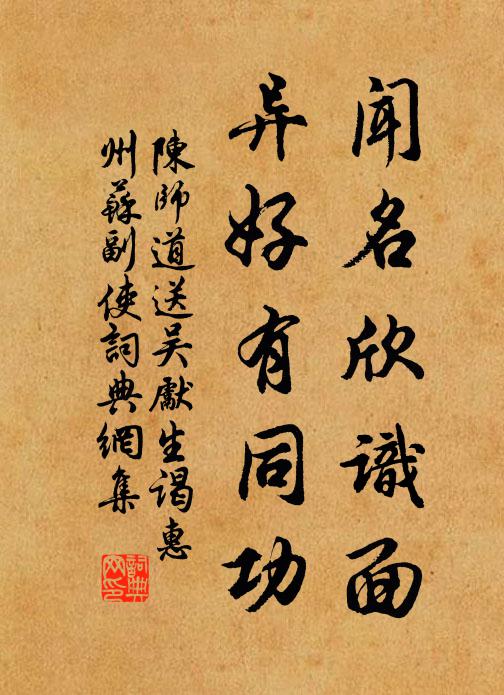 闻名欣識面
异好有同功
陳師道送吴獻生謁惠
州蘇副使詞典網集
詞典
网印